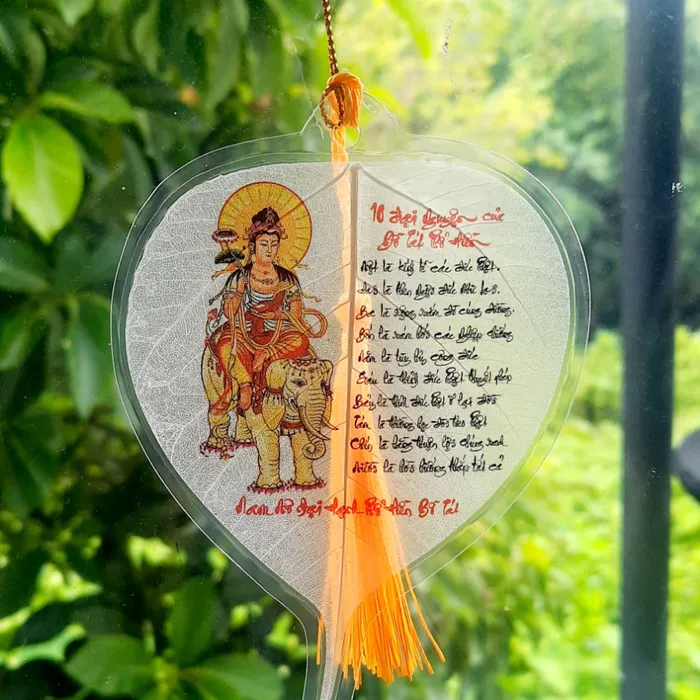 10 Đại Nguyện của
Bồ Tát Phổ Hiền
Một là kính lễ các đức Phật.
Hai là khen ngợi đức Như Lai.
Ba là rộng sắm đồ cúng dường.
Bốn là sám hối các nghiệp chướng
Năm là tùy hỷ công đức
Sáu là thỉnh đức Phật thuyết pháp
Bảy là thỉnh đức Phật ở lại đời
Tám là thường học đòi theo Phật
Chín là hằng thuận lợi chúng sanh
Mười là hồi hướng khắp tất cả
Nam mô Đại Hạnh Phổ Hiền Bồ Tát